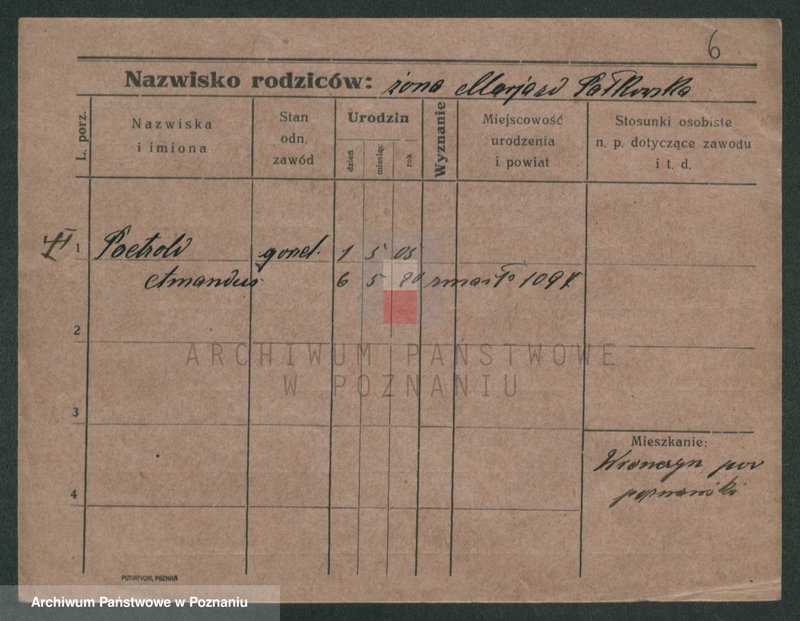 6
Nazwisko rodziców: żona Marjard Pałkowska
L. porz.
Nazwiska
i imiona
Stan
odn.
zawód
Urodzin
dzień
miesiąc
rok
Wyznanie
Miejscowość
urodzenia
i powiat
Stosunki osobiste
n. p. dotyczące zawodu
i t. d.
1 Poetrold 1 5 05
Amandus 6 5 80 1097
2
ARCHIWUM PAŃSTWOWE
W POZNANIU
3
Mieszkanie:
pow
poznański
4
PUTIATYCKI, POZNAŃ
Archiwum Państwowe w Poznaniu